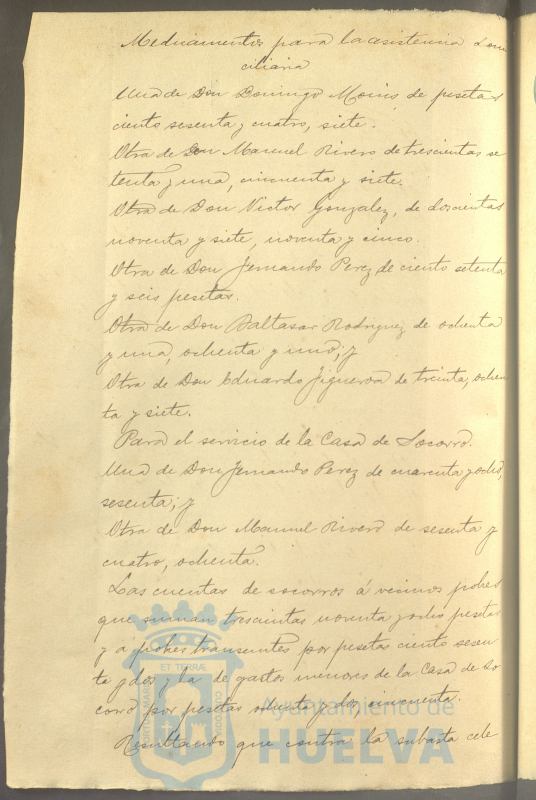 Medicamentos para la asistencia domi
ciliaria
Una de Don Domingo Moins de pesetas
ciento sesenta y cuatro, siete.
Otra de Don Manuel Rivero de trescientas se
tenta y una, cincuenta y siete.
Otra de Don Victor Gonzalez, de doscientas
noventa y siete, noventa y cinco.
Otra de Don Fernando Perez de ciento setenta
y seis pesetas.
Otra de Don Baltasar Rodriguez de ochenta
y una, ochenta y uno; y
Otra de Don Eduardo Figueroa de treinta, ochen
ta y siete.
Para el servicio de la Casa de Socorro.
Una de Don Fernando Perez de cuarenta y ocho,
sesenta; y
Otra de Don Manuel Rivero de sesenta y
cuatro, ochenta.
Las cuentas de socorros á vecinos pobres
que suman trescientas noventa y ocho pesetas
y a pobres transeuntes por pesetas ciento sesen
ta y dos y la de gastos menores de la Casa de So
corro por pesetas ochenta y dos, cincuenta.
Resultando que contra la subasta cele
ET TERRÆ
PORTUS MARIS
CUSTODIA
Ayuntamiento de
HUELVA